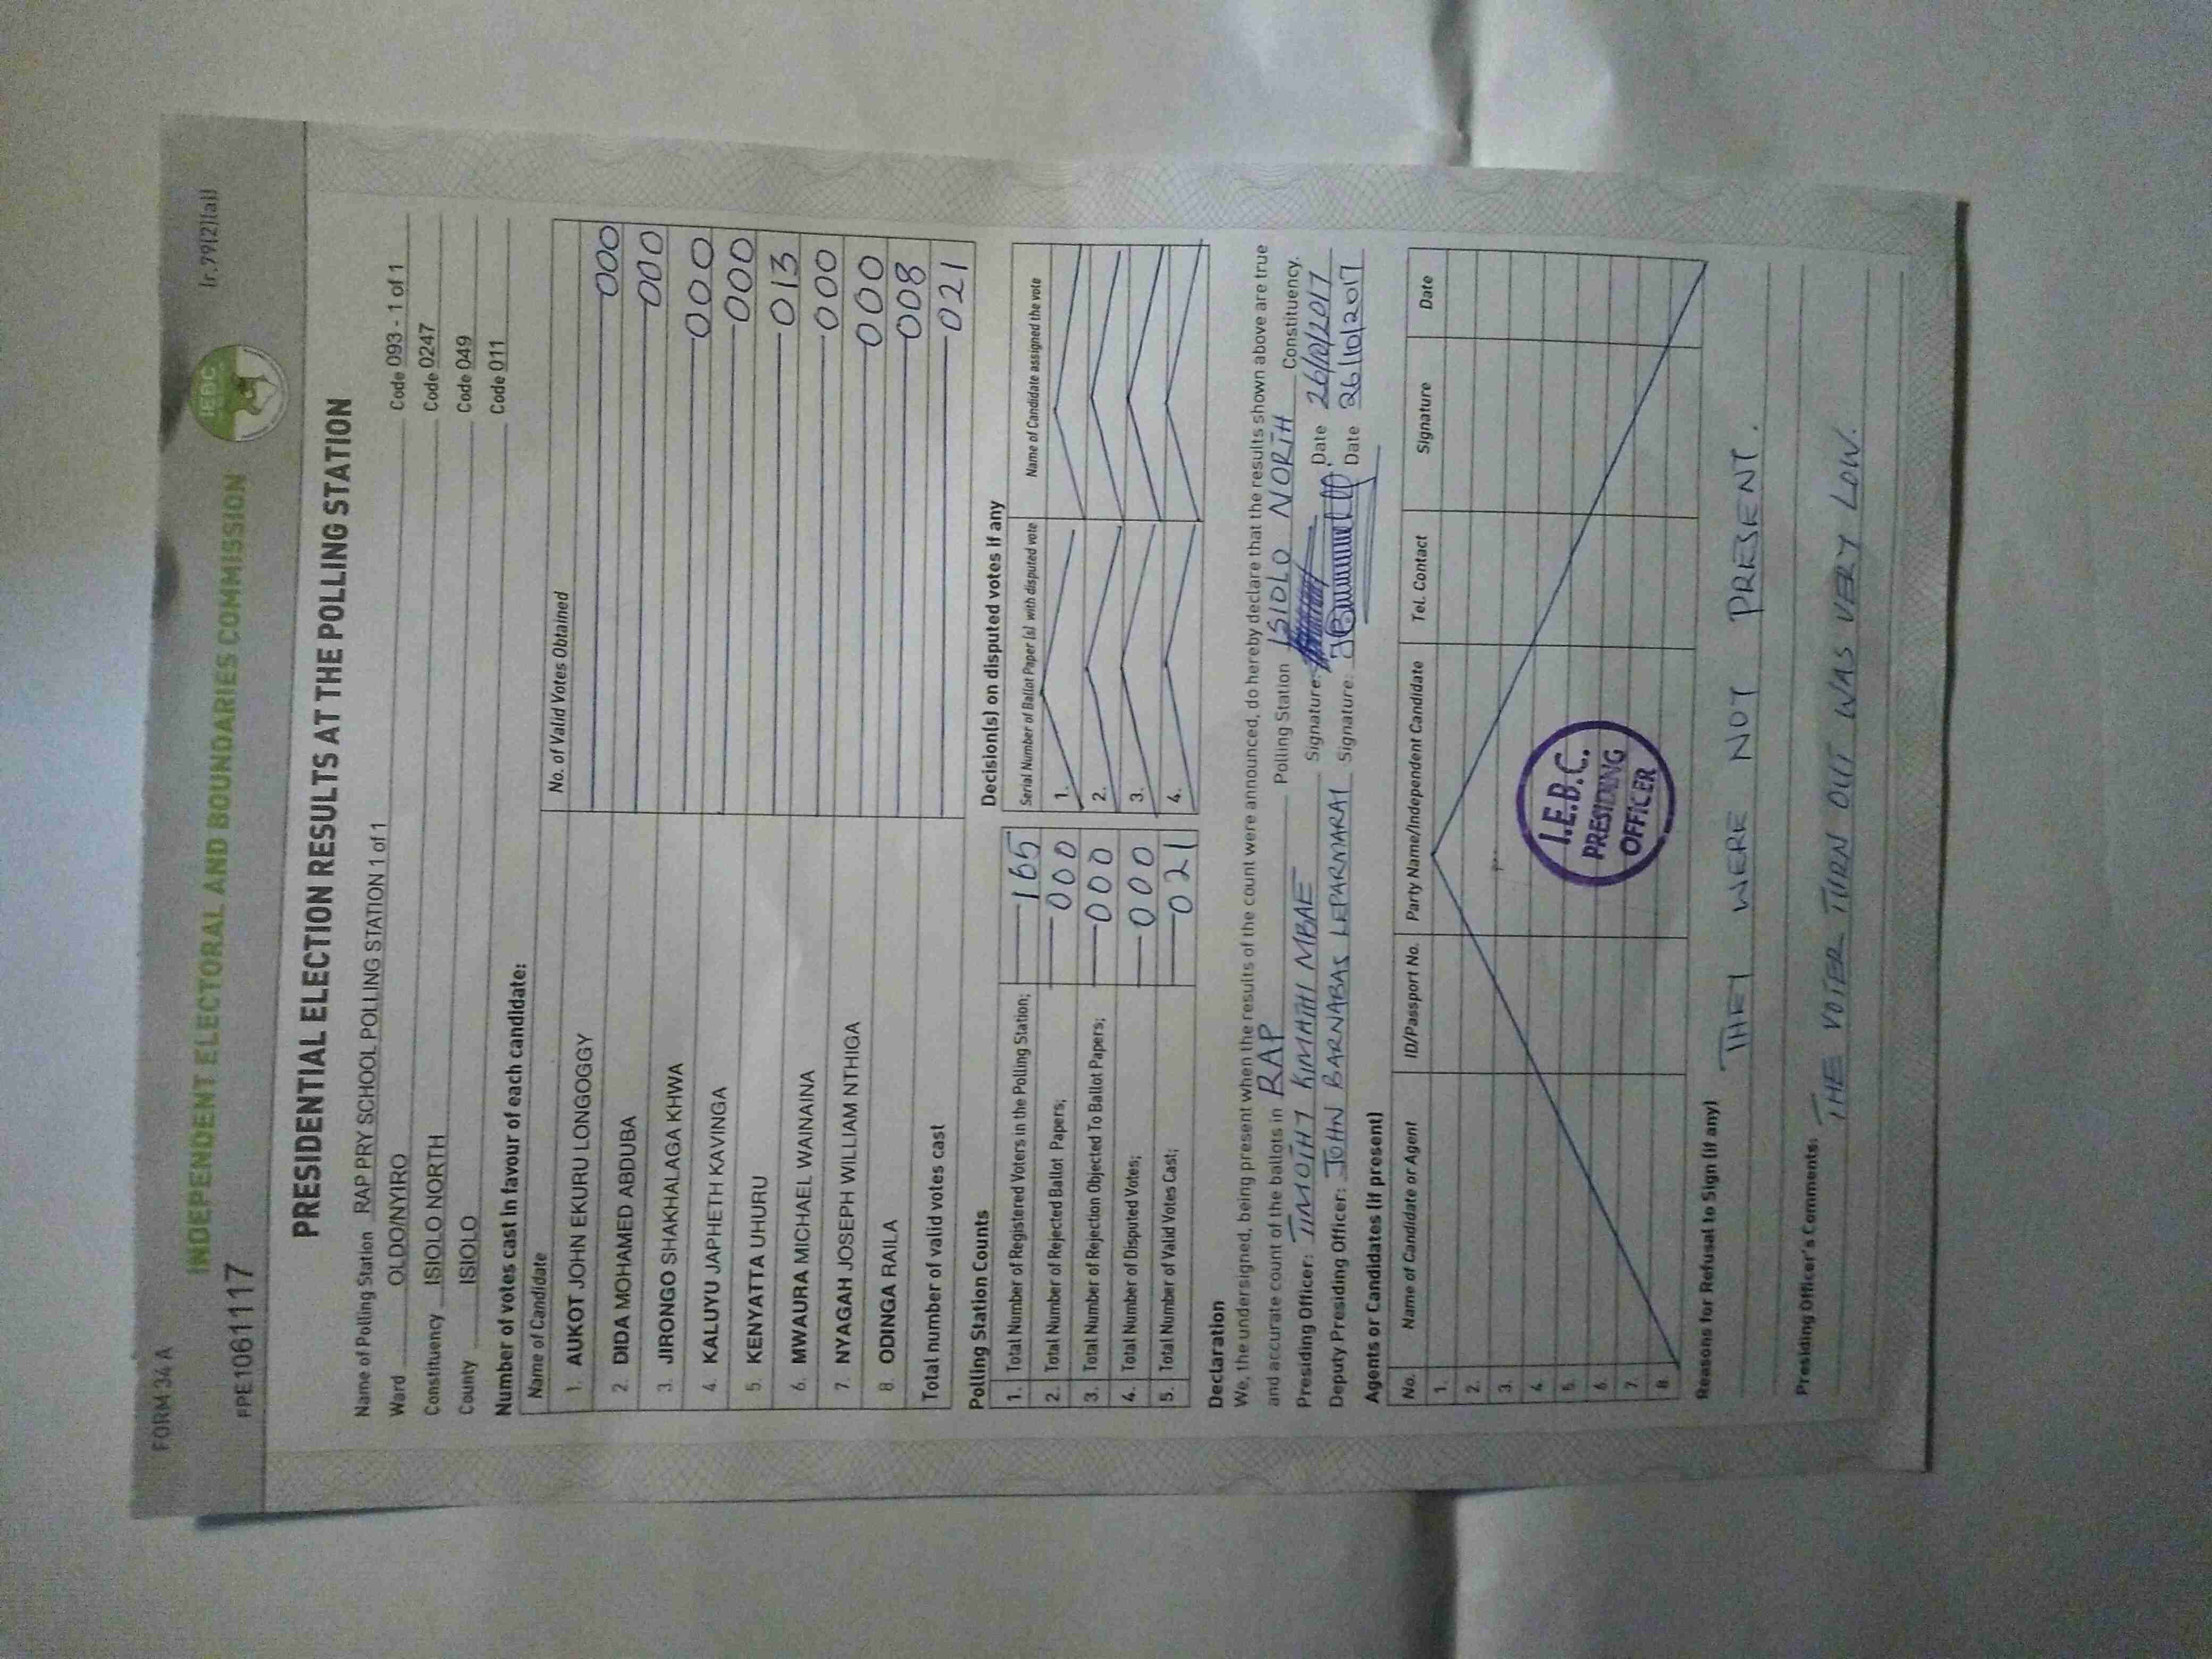 FORM 34 A
(r.79(2)(a))
INDEPENDENT ELECTORAL AND BOUNDARIES COMMISSION
IEBC
PPE1061117
PRESIDENTIAL ELECTION RESULTS AT THE POLLING STATION
Name of Polling Station RAP PRY SCHOOL POLLING STATION 1 of 1 Code 093 - 1 of 1
Ward OLDO/NYIRO Code 0247
Constituency ISIOLO NORTH Code 049
County ISIOLO Code 011
Number of votes cast in favour of each candidate:
Name of Candidate No. of Valid Votes Obtained
1. AUKOT JOHN EKURU LONGOGGY 000
2. DIDA MOHAMED ABDUBA 000
3. JIRONGO SHAKHALAGA KHWA 000
4. KALUYU JAPHETH KAVINGA 000
5. KENYATTA UHURU 013
6. MWAURA MICHAEL WAINAINA 000
7. NYAGAH JOSEPH WILLIAM NTHIGA 000
8. ODINGA RAILA 008
Total number of valid votes cast 021
Polling Station Counts
1. Total Number of Registered Voters in the Polling Station; 165
2. Total Number of Rejected Ballot Papers; 000
3. Total Number of Rejection Objected To Ballot Papers; 000
4. Total Number of Disputed Votes; 000
5. Total Number of Valid Votes Cast; 021
Decision(s) on disputed votes if any
Serial Number of Ballot Paper (s) with disputed vote Name of Candidate assigned the vote
1.
2.
3.
4.
Declaration
We, the undersigned, being present when the results of the count were announced, do hereby declare that the results shown above are true
and accurate count of the ballots in RAP Polling Station ISIOLO NORTH Constituency.
Presiding Officer: TIMOTHY KIMATHI MBAE Signature: Date 26/10/2017
Deputy Presiding Officer: JOHN BARNABAS LEPARMARAI Signature: Date 26/10/2017
Agents or Candidates (if present)
No. Name of Candidate or Agent ID/Passport No. Party Name/Independent Candidate Tel. Contact Signature Date
1.
2.
3.
4.
5.
6.
7.
8.
I.E.B.C.
PRESIDING
OFFICER
Reasons for Refusal to Sign (if any)
THEY WERE NOT PRESENT.
Presiding Officer's Comments:
THE VOTER TURN OUT WAS VERY LOW.